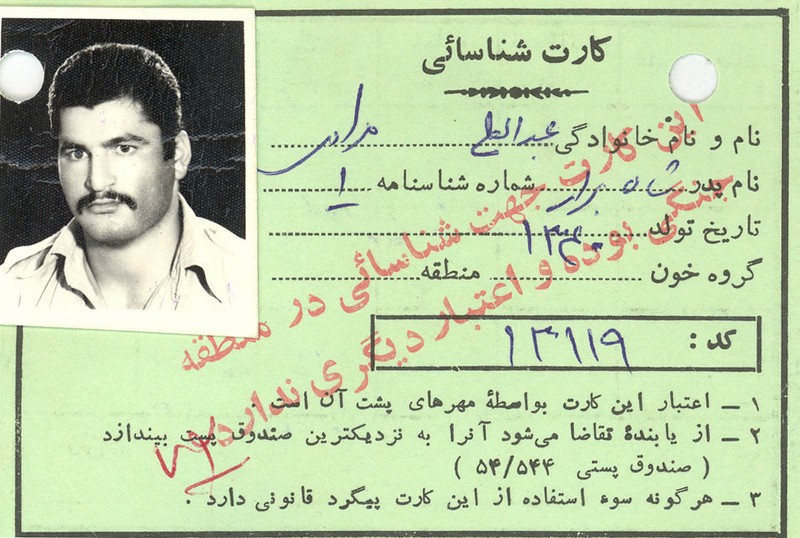 کارت شناسائی
نام و نام خانوادگی عبدالعلی مرادی
نام پدر شاه مراد شماره شناسنامه ۱
تاریخ تولد ۱۳۴۰
گروه خون منطقه
کد : ۱۳۱۱۹
این کارت جهت شناسائی در منطقه
جنگی بوده و اعتبار دیگری ندارد
۱ ــ اعتبار این کارت بواسطهٔ مهرهای پشت آن است .
۲ ــ از یابندهٔ تقاضا می‌شود آنرا به نزدیکترین صندوق پست بیندازد
( صندوق پستی ۵۴/۵۴۴ )
۳ ــ هرگونه سوء استفاده از این کارت پیگرد قانونی دارد .